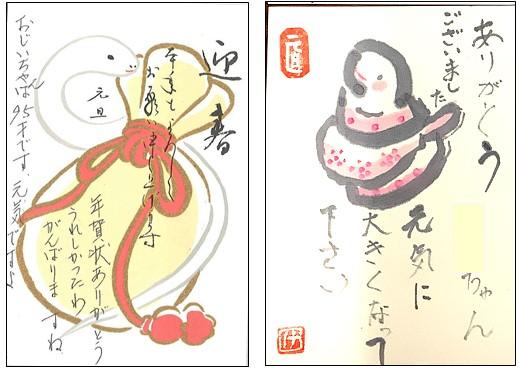 迎春
本年もよろしく
お願い申し上げます
元旦
年賀状ありがとう
うれしかったわ
がんばりますね
おじいちゃんは95才です、元気ですよ
ありがとう
ございました
ちゃん
元気に
大きくなって
下さい